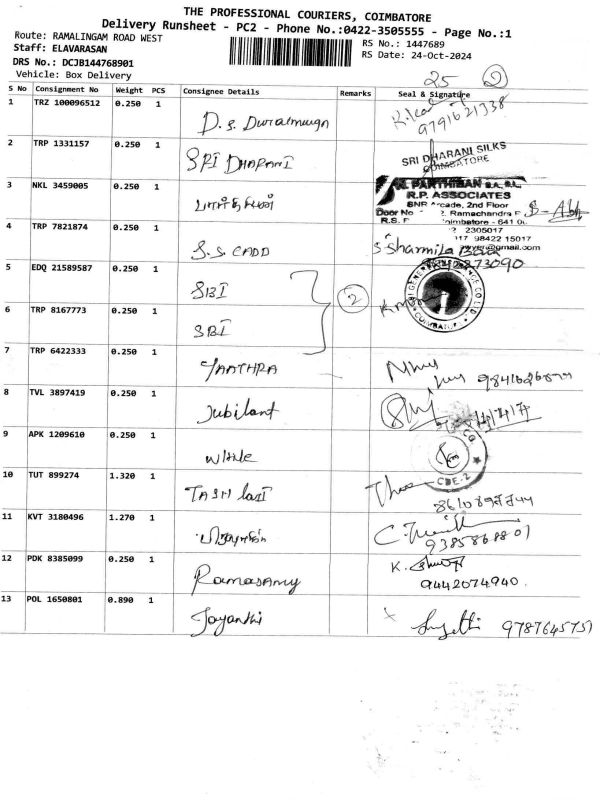 THE PROFESSIONAL COURIERS, COIMBATORE
Delivery Runsheet - PC2 - Phone No.:0422-3505555 - Page No.:1
Route: RAMALINGAM ROAD WEST
RS No.: 1447689
Staff: ELAVARASAN
RS Date: 24-Oct-2024
DRS No.: DCJB144768901
Vehicle: Box Delivery
25 2
S No Consignment No Weight PCS Consignee Details Remarks Seal & Signature
1 TRZ 100096512 0.250 1 D. S. Duraimuruga
9791621338
2 TRP 1331157 0.250 1 SRI DHARANI SRI DHARANI SILKS
COIMBATORE
3 NKL 3459005 0.250 1 பார்த்திபன் PARTHIBAN B.A., B.L.
R.P. ASSOCIATES
SNR Arcade, 2nd Floor
Door No Ramachandra
R.S. Coimbatore - 641 0
2305017
98422 15017
@gmail.com
4 TRP 7821874 0.250 1 S.S. CADD S. Sharmila
273090
5 EDQ 21589587 0.250 1 SBI 2
COIMBATORE
6 TRP 8167773 0.250 1 SBI
7 TRP 6422333 0.250 1 YAATHRA
8 TVL 3897419 0.250 1 Jubilant
9 APK 1209610 0.250 1
CBE-2
10 TUT 899274 1.320 1
11 KVT 3180496 1.270 1
9385868801
12 PDK 8385099 0.250 1 Ramasamy K.
9442074940.
13 POL 1650801 0.890 1 Jayanthi x 9787645751